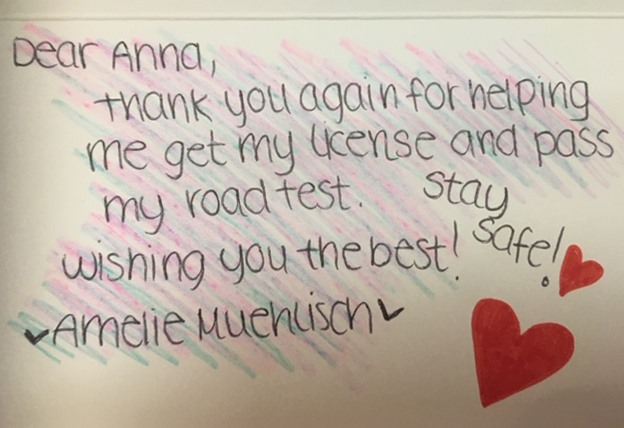 Dear Anna,
thank you again for helping
me get my license and pass
my road test. Stay
safe!
wishing you the best!
Amelie Muehlisch